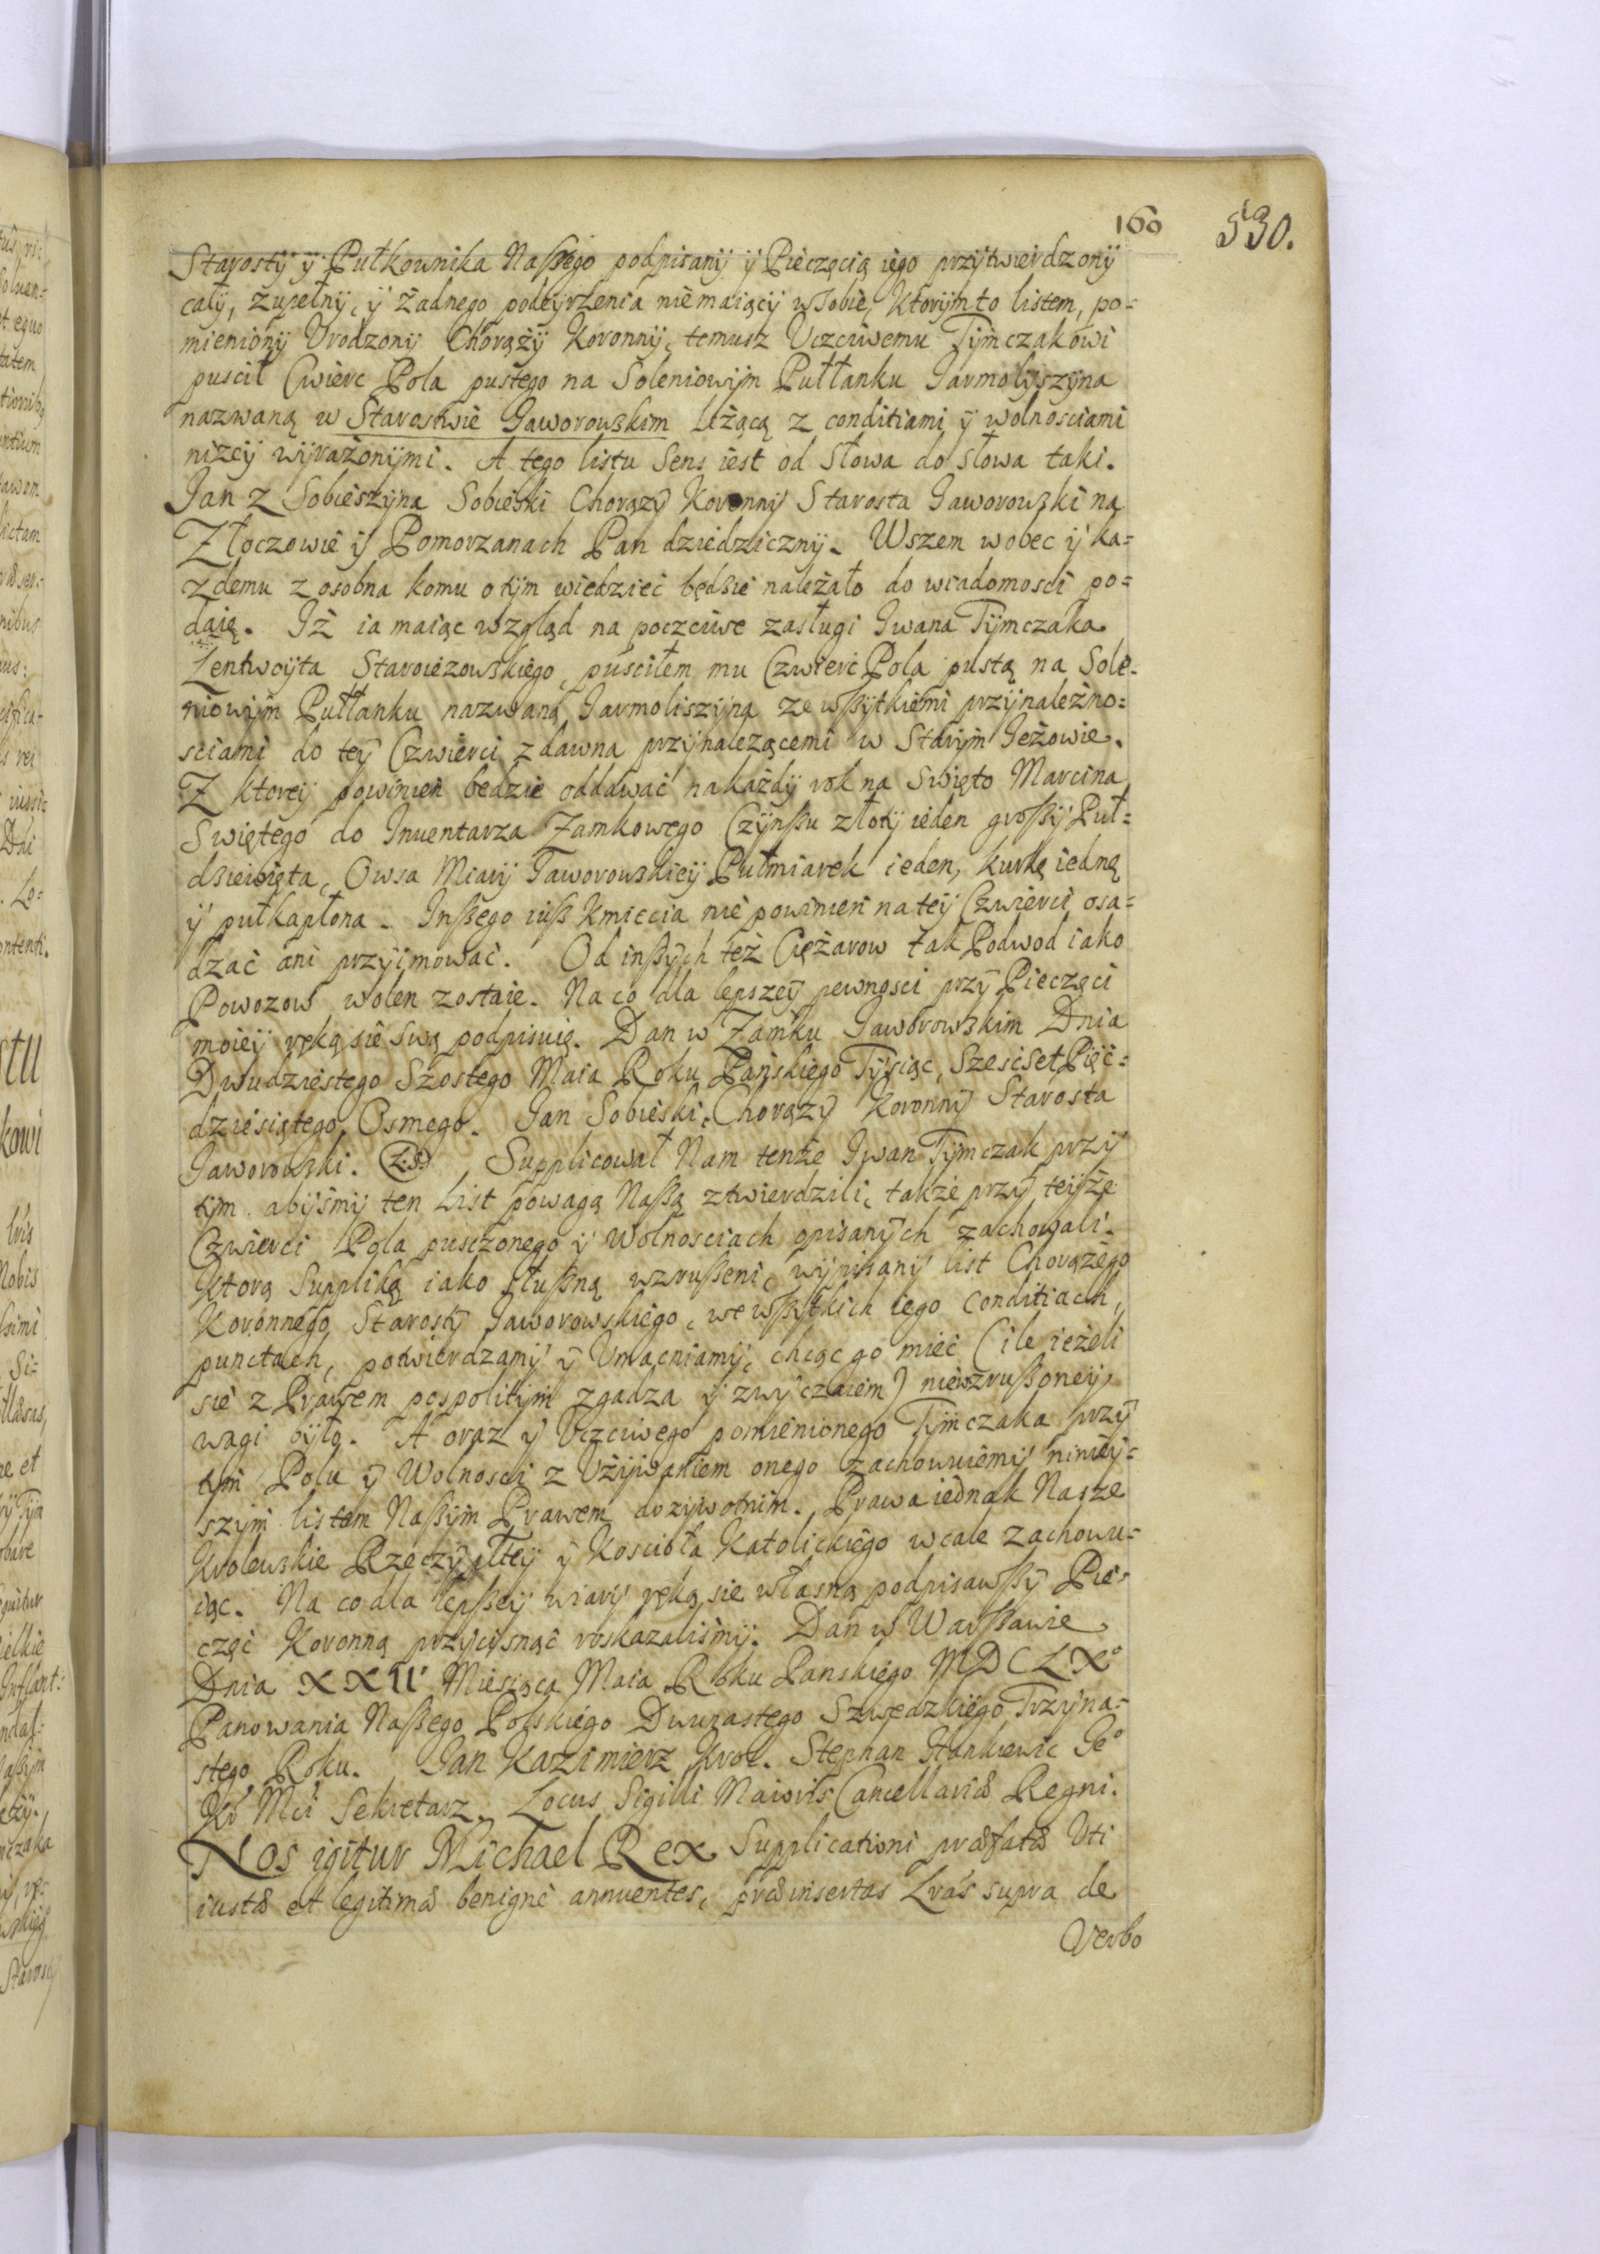 160 530.
Starosty ÿ Pułkownika Naszego podpisany ÿ Pieczęcią iego przytwierdzony
cały, zupełny, ÿ żadnego podeyrzenia niemaiący wsobie, Ktorymto listem, po=
mieniony Vrodzony Chorąży Koronny, temusz Vczciwemu Tymczakowi
puscił Cwierc Pola pustego na Soleniowym Pułłanku Jarmolyszyna
nazwaną w Starostwie Jaworowskim leżącą z conditiami ÿ wolnosciami
niżey wyrażonymi. A tego listu Sens iest od Słowa do Słowa taki.
Jan z Sobieszyna Sobieski Chorąży Koronny Starosta Jaworowski na
Złoczowie ÿ Pomorzanach Pan dziedziczny. Wszem wobec ÿ ka=
zdemu z osobna komu otym wiedzieć będzie należało do wiadomosci po=
daię. Iż ia maiąc wzgląd na poczciwe zasługi Iwana Tymczaka
Lentwoyta Staroiezowskiego, pusciłem mu Czwierć Pola pustą na Sole=
niowym Pułłanku nazwaną Jarmoliszyną ze wszytkiemi przynależno=
sciami do tey Czwierci zdawna przynalezącemi w Starym Jeżowie.
Z ktorey powinien bedzie oddawać nakażdy rok na Swięto Marcina
Swiętego do Inuentarza Zamkowego Czynszu złoty ieden groszy Puł=
dziewięta, Owsa Miary Jaworowskiey Pułmiarek ieden, kurkę iedną
ÿ pułkapłona. Inszego iusz Kmiecia nie powinien natey Czwierci osa=
dzać ani przyimować. Od inszych też Ciężarow tak Podwod iako
Powozow wolen zostaie. Na co dla lepszey pewnosci przy Pieczęci
moiey ręką sie swą podpisuię. Dan w Zamku Jaworowskim Dnia
Dwudziestego Szostego Maia Roku Pańskiego Tysiąc, Szescset Pięć=
dziesiątego Osmego. Jan Sobieski, Chorązy Koronny Starosta
Jaworowski. L.S. Supplicował Nam tenże Iwan Tymczak przy
tym abysmy ten List powagą Naszą ztwierdzili, także przy teyże
Czwierci Pola pusczonego ÿ Wolnosciach opisanych zachowali.
Ktorą Suppliką iako słuszną wzruszeni, wypisany list Chorążego
Koronnego Starosty Jaworowskiego, we wszytkich iego Conditiach,
punctach, potwierdzamy ÿ Vmacniamy, chcąc go mieć (ile ieżeli
sie z Prawem pospolitym zgadza ÿ zwyczaiem) niewzruszoney
wagi było. A oraz ÿ Vczciwego pomienionego Tymczaka przy
tym Polu ÿ Wolnosci z Vżywaniem onego zachowuiemy ninieÿ=
szym listem Naszym Prawem dozywotnim. Prawa iednak Nasze
Krolewskie Rzeczyplltey ÿ Koscioła Katolickiego wcale zachowu=
iąc. Na co dla lepszey wiary ręką sie własną podpisawszy Pie=
częć Koronną przycisnąć roskazalismy. Dan w Warszawie
Dnia XXII Miesiąca Maia Roku Panskiego MDCLXº
Panowania Naszego Polskiego Dwunastego Szwedzkiego Trzyna=
stego Roku. Jan Kazimierz Krol. Stephan Hankiewic Jeº
Kr Mci Sekretarz. Locus Sigilli Maioris Cancellariæ Regni.
Nos igitur Michael Rex Supplicationi præfatæ Vti
iustæ et legitimæ benigne annuentes, præinsertas Lras supra de
Verbo